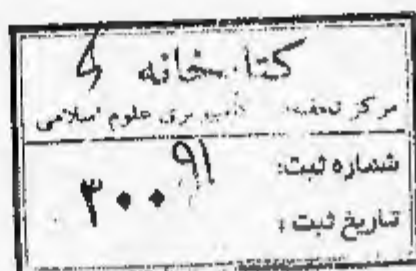 کتابخانه
مرکز تحقیقات کامپیوتری علوم اسلامی
شماره ثبت: ۳۰۰۹۱
تاریخ ثبت :